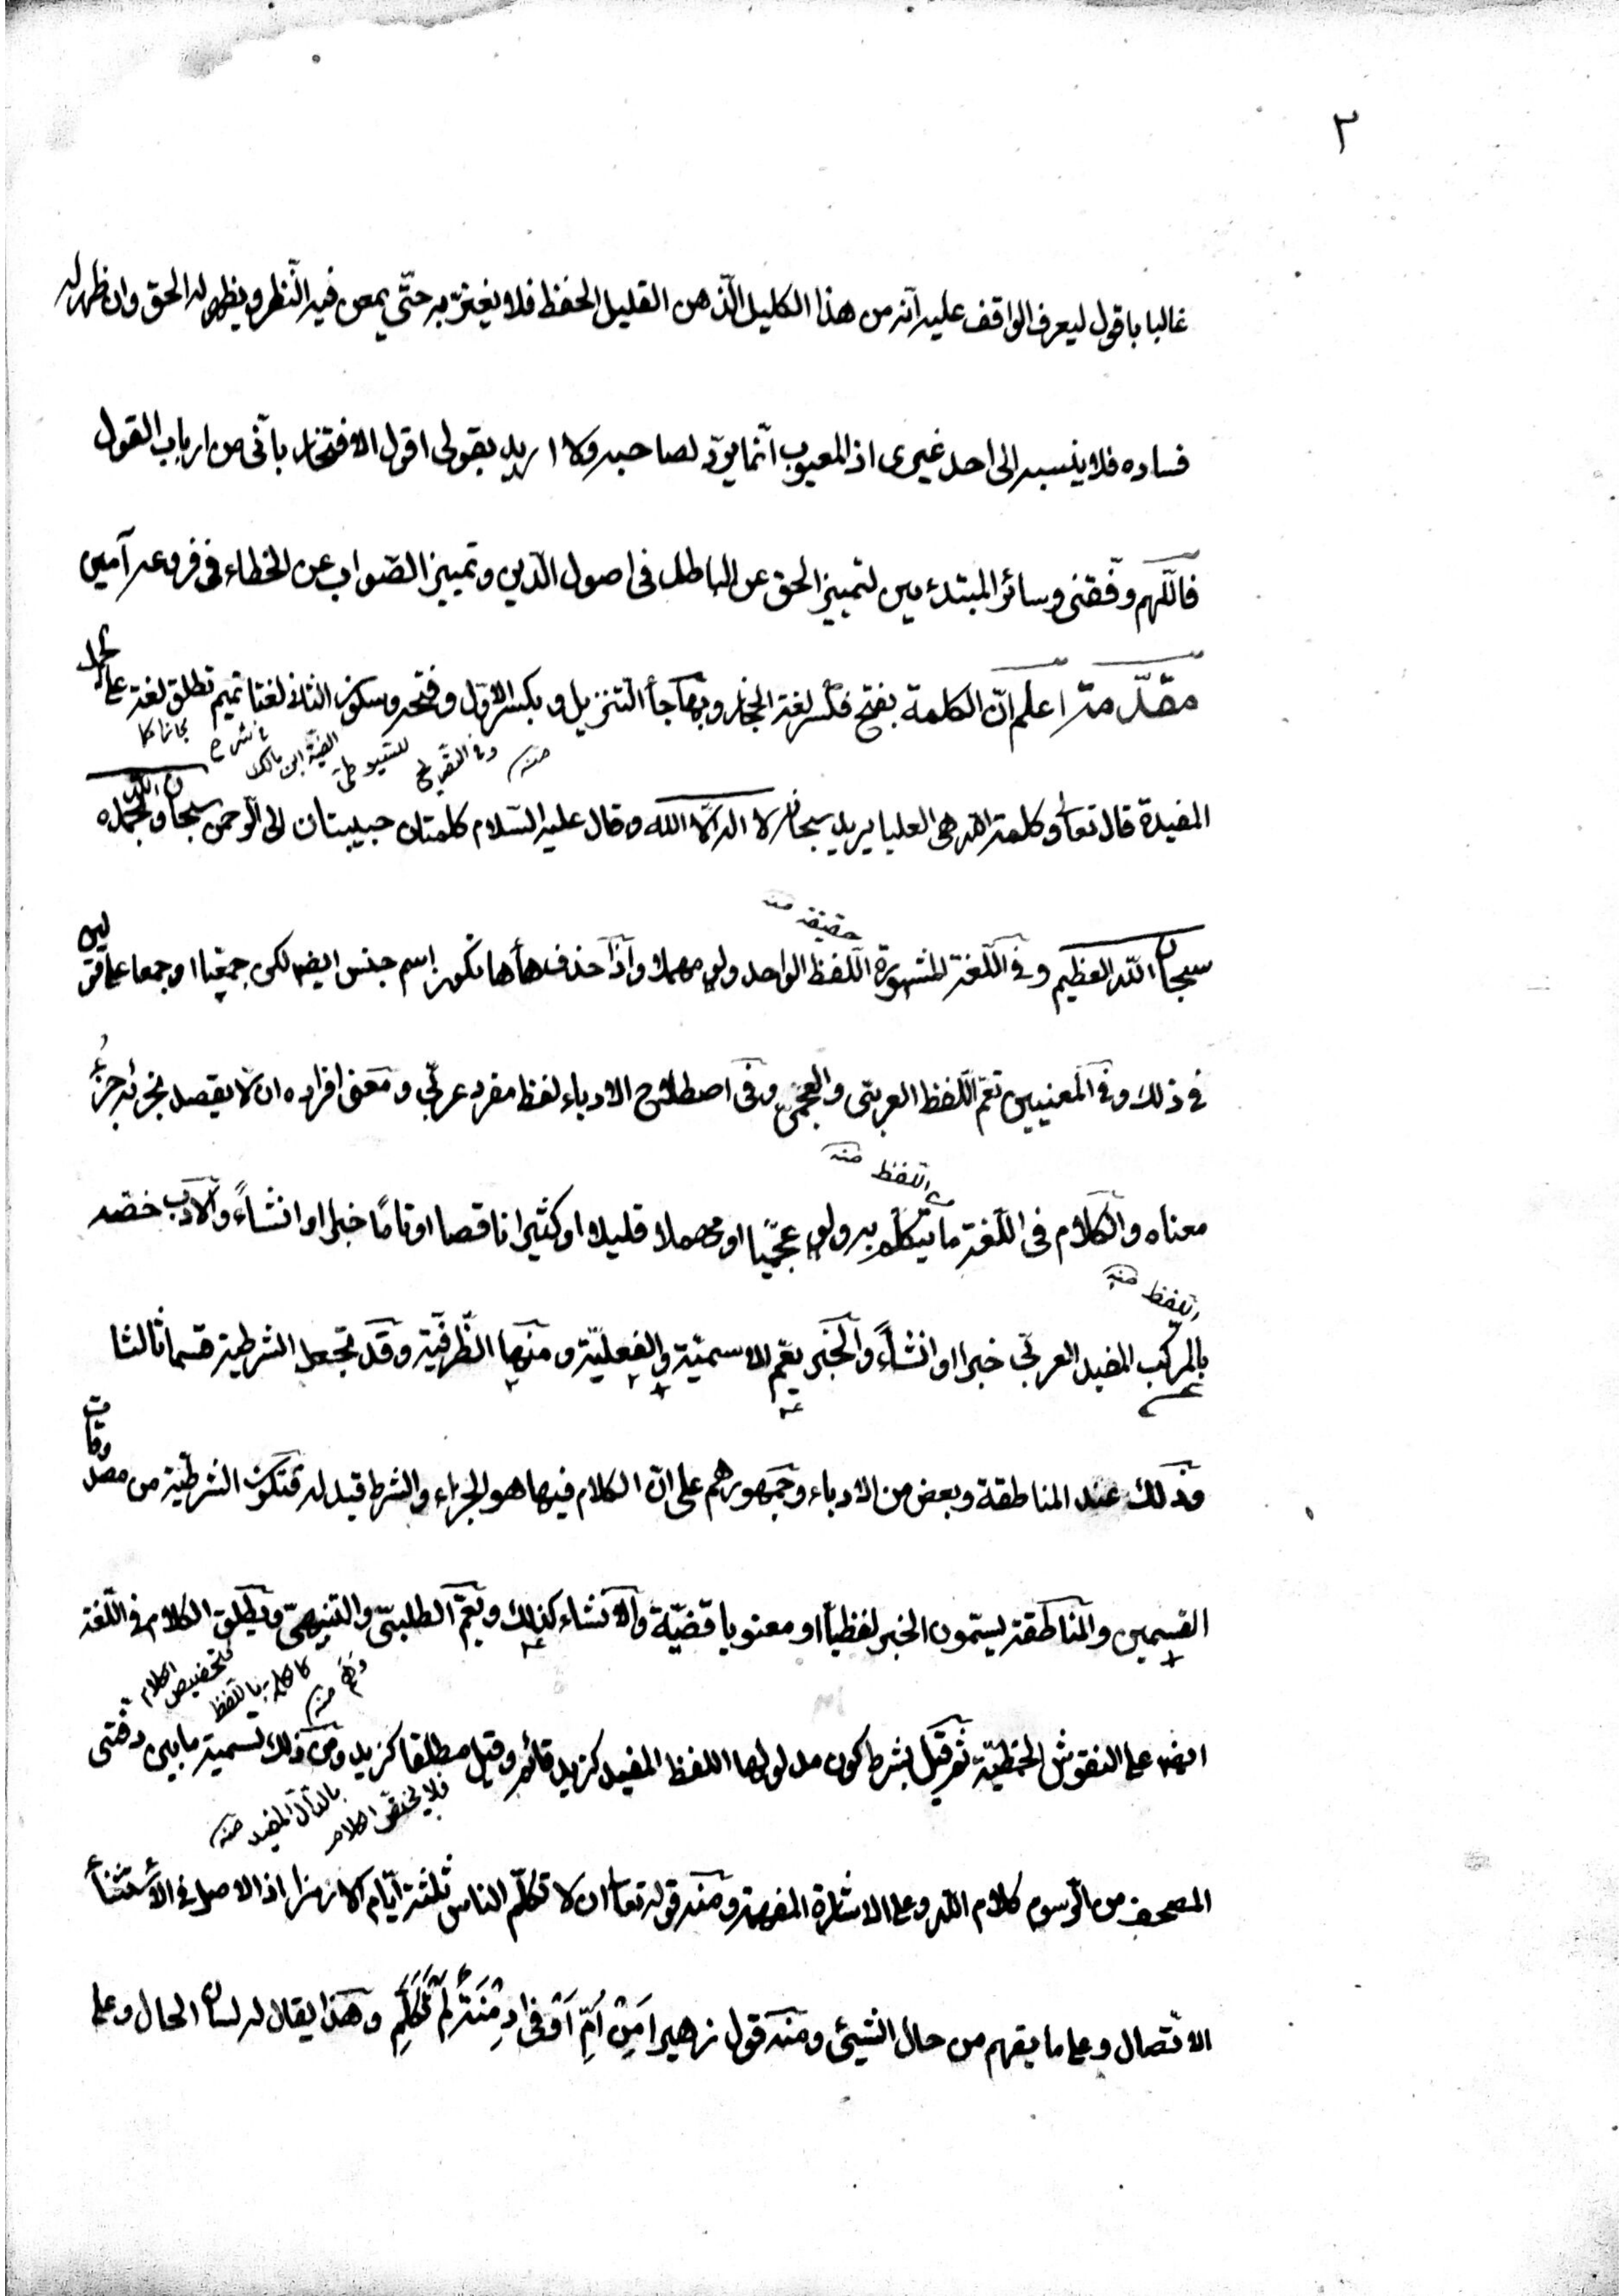 ٣
غالبا باقول ليعرف الواقف عليه انّه من هذا الكليل الذّهن القليل الحفظ فلا يغترّ به حتّى يمعن فيه النّظر ويظهر له الحق وان ظهر له
فساده فلا ينسبه الى احد غيرى اذ المعيوب انّما يردّ لصاحبه ولا اريد بقولى اقول الافتخار بانّى من ارباب القول
فاللّهم وفّقنى وسائر المبتدءين لتمييز الحق عن الباطل فى اصول الدّين وتمييز الصّواب عن الخطاء فى فروعه آمين
مقدّمة اعلم انّ الكلمة بفتح فكسر لغة الحجاز وبها جاء التنزيل وبكسر الاوّل وفتحه وسكون الثانى لغتا تميم تطلق لغة على الجمل
منه
المفيدة قال تعا وكلمة الله هى العليا يريد سبحانه لا اله الّا الله وقال عليه السّلام كلمتان حبيبتان الى الرّحمن سبحان الله وبحمده
حقيقة منه
سبحان اللّه العظيم وفى اللّغة المشهورة اللّفظ الواحد ولو مهملا واذا حذف هاءها تكون اسم جنس ايضا لكن جمعيّا او جمعا على قولين
فى ذلك وفى المعنيين تعمّ اللّفظ العربىّ والعجمىّ وفى اصطلاح الادباء لفظ مفرد عربىّ ومعنى افراده ان لا يقصد بجزئه جزءُ
اللّفظ منه
معناه والكلام فى اللّغة ما يتكلّم به ولو عجميّا او مهملا قليلا او كثيرا ناقصا او تامّا خبرا او انشاءً والادب خصّه
اللّفظ منه
بالمركّب المفيد العربىّ خبرا او انشاءً والخبر يعمّ الاسميّة والفعليّة ومنها الظّرفيّة وقد تجعل الشرطية قسما ثالثا
وذلك عند المناطقة وبعض من الادباء وجمهورهم على انّ الكلام فيها هو الجزاء والشرط قيد له فتكون الشرطيّة من مصدوقات
القسمين والمناطقة يسمّون الخبر لفظيّا او معنويا قضيّة والانشاء كذلك ويعمّ الطلبىّ والتنبيهىّ ويطلق الكلام فى اللّغة
ايضا على النقوش الخطيّة ثم قيل بشرط كون مدلولها اللفظ المفيد كزيد قائم وقيل مطلقا كزيد ومن ذلك تسمية ما بين دفّتى
فلا يختصّ الكلام بالدّالّ المفيد منه
المصحف من الرّسوم كلام اللّه وعلى الاشارة المفهمة ومنه قوله تعا ان لا تكلّم الناس ثلثة ايّام الا رمزا اذ الاصل فى الاستثناء
الاتّصال وعلى ما يفهم من حال الشيئ ومنه قول زهير اَمِنْ اُمِّ اَوْفى دِمْنَةٌ لَمْ تَكَلَّمِ وهذا يقال له لسان الحال وعلى